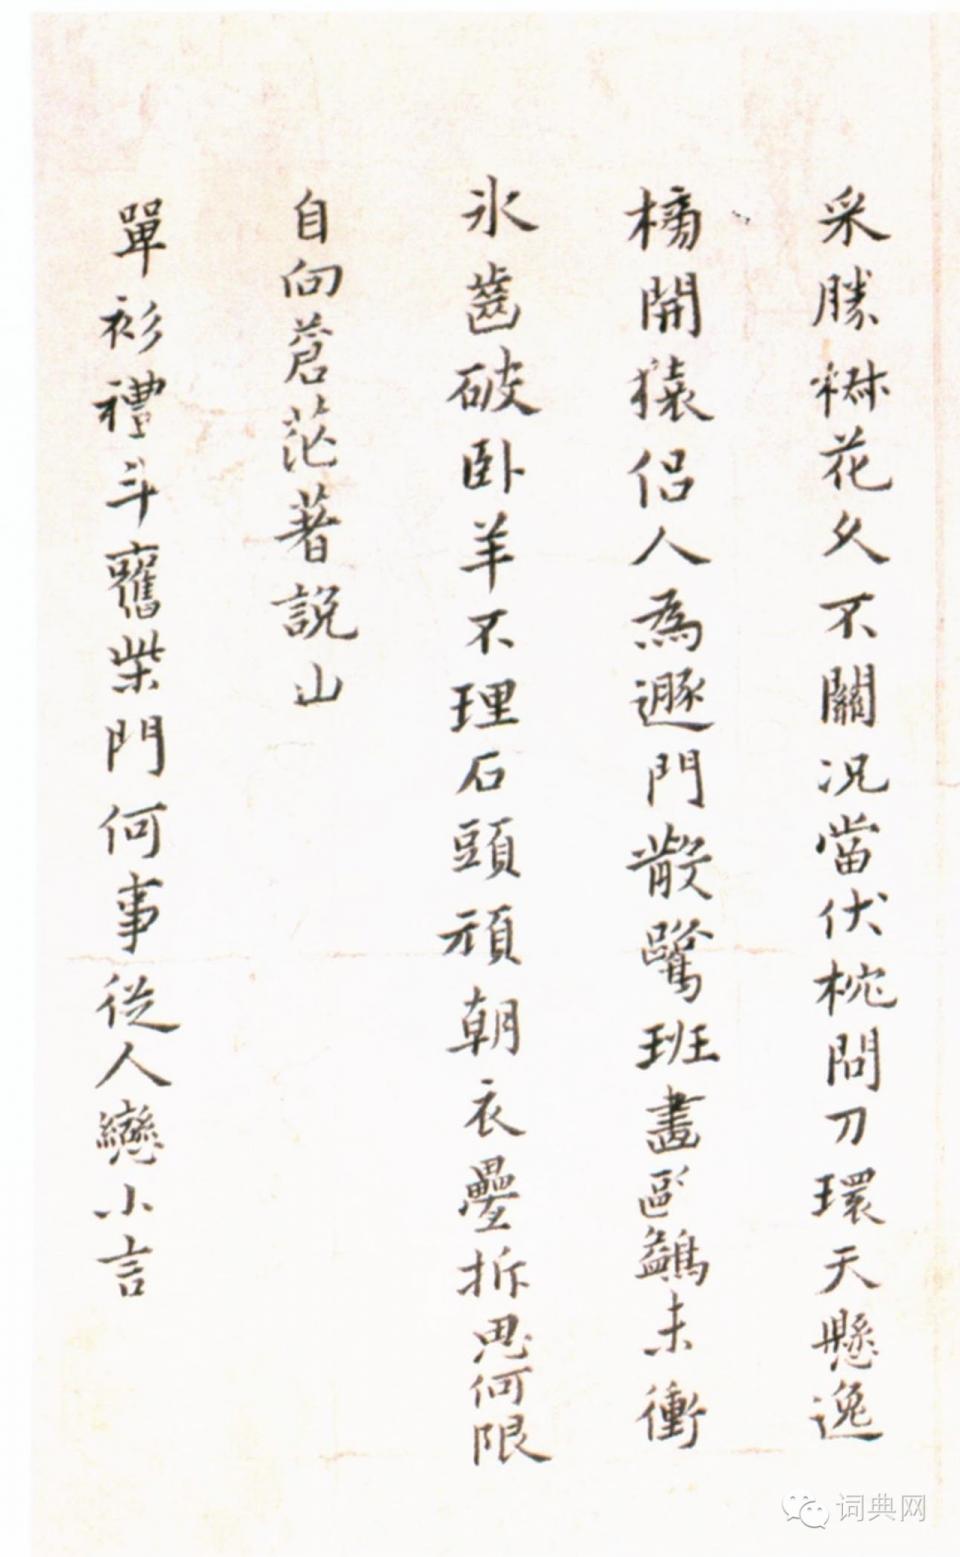 采勝椒花久不關况當伏枕問刀環天懸逸
橘開猿侣人為遯門散鷺班畫鷁未衝
氷齒破卧羊不理石頭頑朝衣疊拆思何限
自向蒼茫著説山
單衫禮斗舊柴門何事從人戀小言
词典网